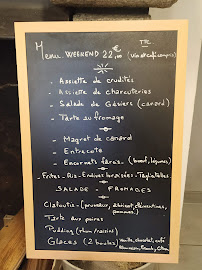 Menu WEEKEND 22,00 TTC (vin et café compris)
- Assiette de crudités
- Assiette de charcuteries
- Salade de Gésiers (canard)
- Tarte au fromage
- Magret de canard
- Entrecote
- Encornets farcis (boeuf, légumes)
- Frites - Ris - Endives braisées - Tagliatelles -
SALADE - FROMAGES
- Clafoutis - (pruneaux, abricot, clémentines,
pommes)
Tarte aux poires
Pudding (rhum/raisins)
Glaces (2 boules) Vanille, chocolat, café
Citron